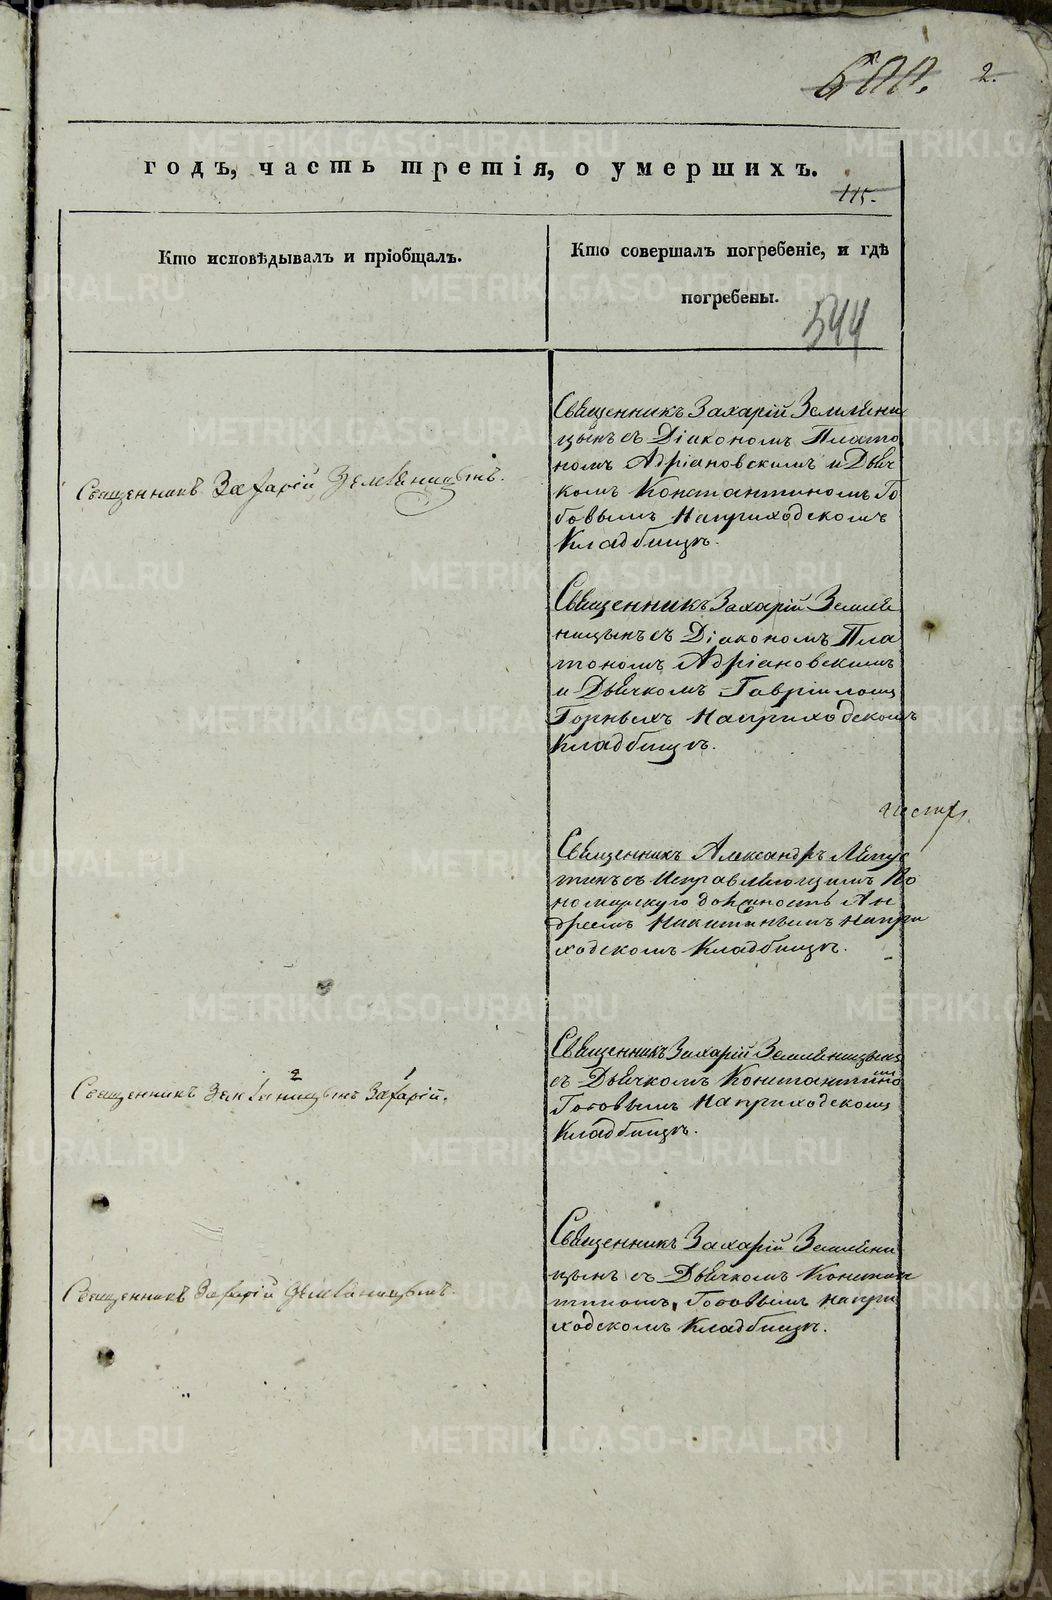 600. 2.
годъ, часть третія, о умершихъ.
115.
Кто исповѣдывалъ и пріобщалъ.
Кто совершалъ погребеніе, и гдѣ
погребены.
544
Священникъ Захарій Земляницынъ.
Священникъ Захарій Земляни
цынъ съ Діакономъ Плато
номъ Адріановскимъ и Дьяч
комъ Константиномъ Го
ховымъ На приходскомъ
Кладбищѣ.
Священникъ Захарій Земля
ницынъ съ Діакономъ Пла
тономъ Адріановскимъ
и Дьячкомъ Гавріиломъ
Горныхъ На приходскомъ
Кладбищѣ.
Священникъ Александръ
съ Исправляющимъ По
номарскую должность Ан
дреемъ Никитинымъ На при
ходскомъ Кладбищѣ.
Священникъ Земляницынъ Захарій.
2 1
Священникъ Захарій Земляницынъ
съ Дьячкомъ Константино
мъ
На приходскомъ
Кладбищѣ.
Священникъ Захарій Земляницынъ.
Священникъ Захарій Земляни
цынъ съ Дьячкомъ Констан
тиномъ, На при
ходскомъ Кладбищѣ.
METRIKI.GASO-URAL.RU